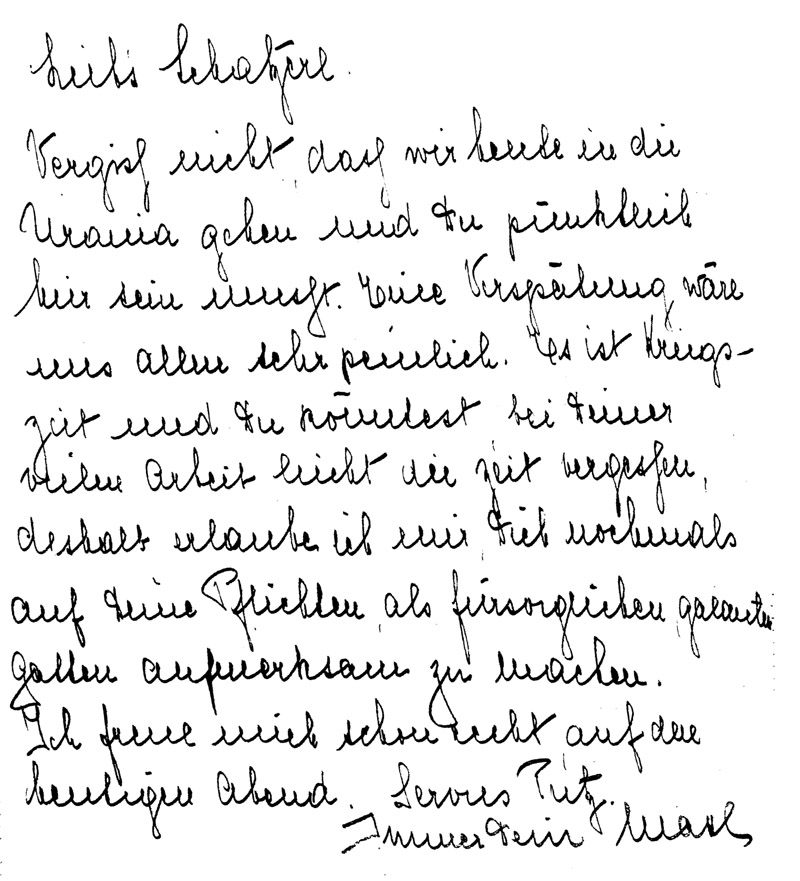 Liebs Schatzerl.
Vergiß nicht, daß wir heute in die
Urania gehen und Du pünktlich
hier sein mußt. Eine Verspätung wäre
uns allen sehr peinlich. Es ist Kriegs-
zeit und Du könntest bei Deiner
vielen Arbeit leicht die Zeit vergeßen,
deshalb erlaube ich mir, Dich nochmals
auf Deine Pflichten als fürsorglichen, galanten
Gatten aufmerksam zu machen.
Ich freue mich schon recht auf den
heutigen Abend. Servus Putz.
Immer Dein